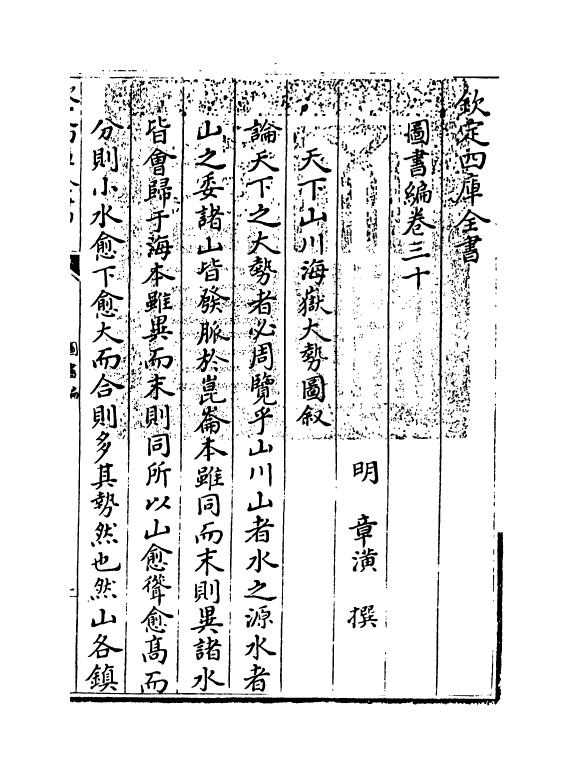 欽定四庫全書
圖書編卷三十
明　章潢　撰
天下山川海嶽大勢圖叙
論天下之大勢者必周覽乎山川山者水之源水者
山之委諸山皆發脈於崑崙本雖同而末則異諸水
皆會歸于海本雖異而末則同所以山愈聳愈髙而
分則小水愈下愈大而合則多其勢然也然山各鎮
圖書編